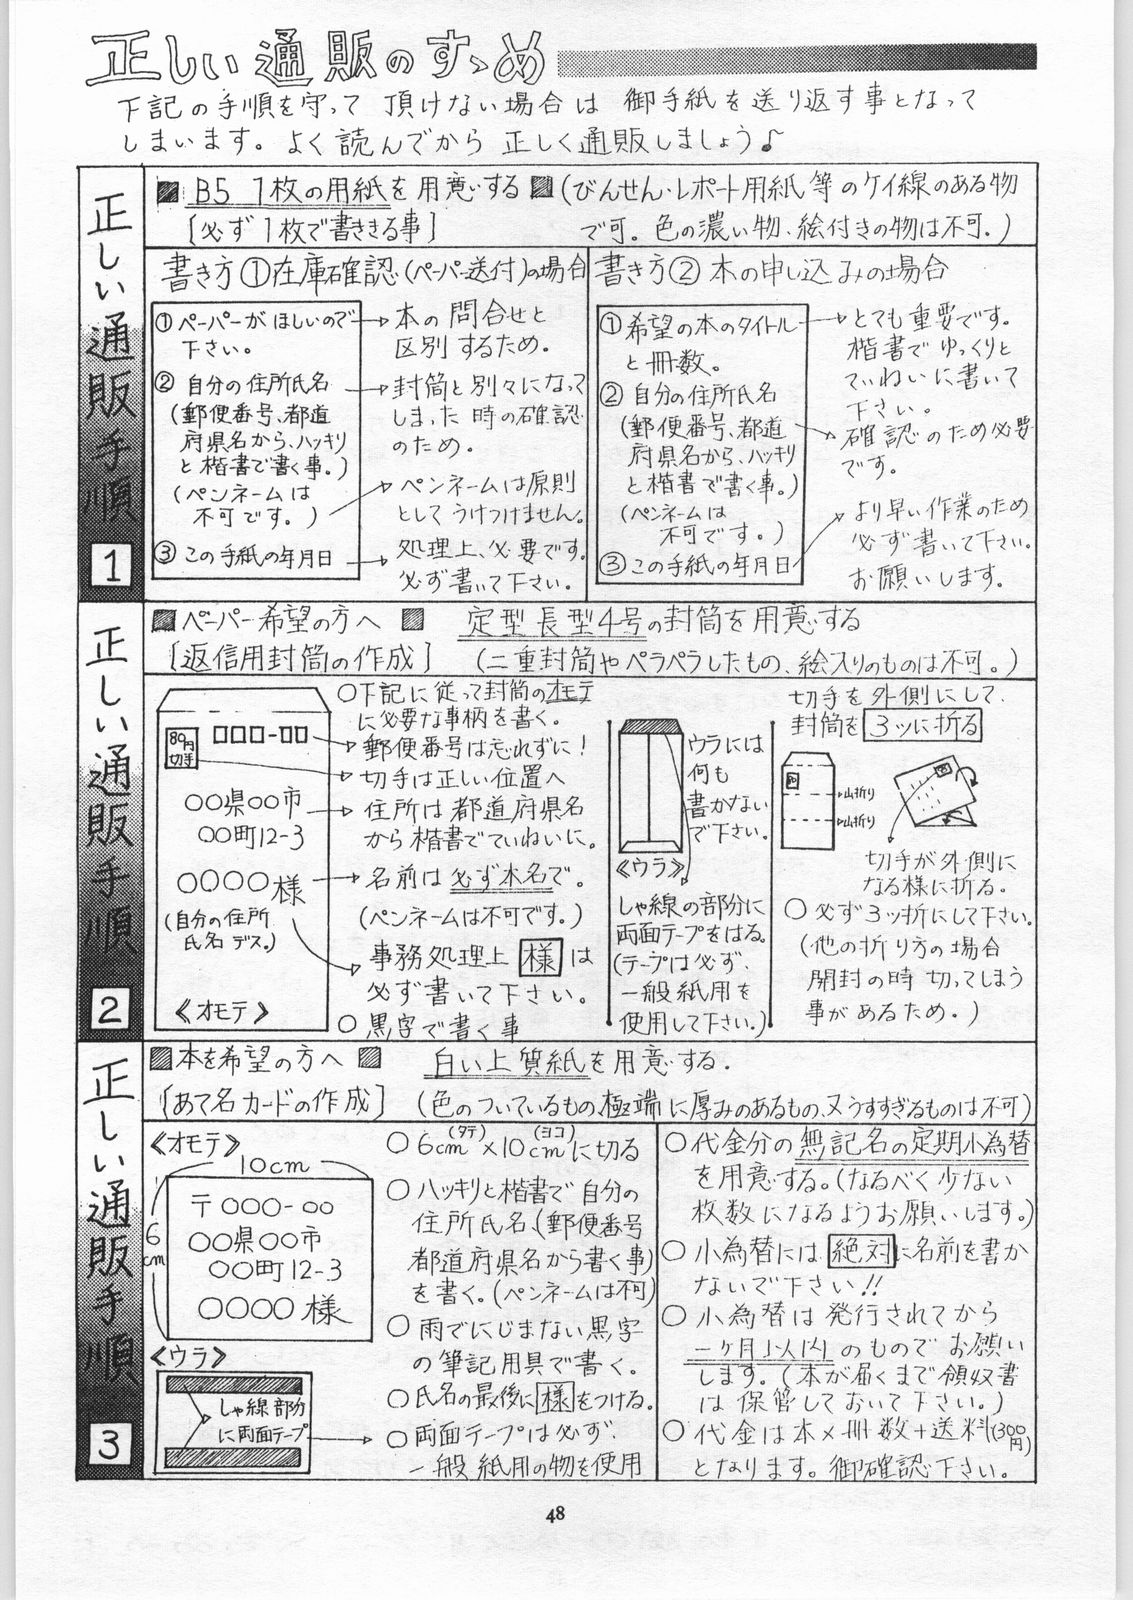 正しい通販のすゝめ
下記の手順を守って頂けない場合は御手紙を送り返す事となって
しまいます。よく読んでから正しく通販しましょう♪
正しい通販手順
1
■B5 1枚の用紙を用意する■(びんせん・レポート用紙等のケイ線のある物
[必ず1枚で書ききる事]
で可。色の濃い物、絵付きの物は不可。)
書き方①在庫確認(ペーパー送付)の場合
①ペーパーがほしいので
下さい。
②自分の住所氏名
(郵便番号、都道
府県名から、ハッキリ
と楷書で書く事。)
(ペンネームは
不可です。)
③この手紙の年月日
本の問合せと
区別するため。
封筒と別々になって
しまった時の確認
のため。
ペンネームは原則
としてうけつけません。
処理上、必要です。
必ず書いて下さい。
書き方②本の申し込みの場合
①希望の本のタイトル
と冊数。
②自分の住所氏名
(郵便番号、都道
府県名から、ハッキリ
と楷書で書く事。)
(ペンネームは
不可です。)
③この手紙の年月日
とても重要です。
楷書でゆっくりと
ていねいに書いて
下さい。
確認のため必要
です。
より早い作業のため
必ず書いて下さい。
お願いします。
正しい通販手順
2
■ペーパー希望の方へ■ 定型長型4号の封筒を用意する
[返信用封筒の作成] (二重封筒やペラペラしたもの、絵入りのものは不可。)
80円
切手
□□□-□□
○○県○○市
○○町12-3
○○○○様
(自分の住所
氏名デス。)
《オモテ》
○下記に従って封筒のオモテ
に必要な事柄を書く。
郵便番号は忘れずに!
切手は正しい位置へ
住所は都道府県名
から楷書でていねいに。
名前は必ず本名で。
(ペンネームは不可です。)
事務処理上様は
必ず書いて下さい。
○黒字で書く事
ウラには
何も
書かない
で下さい。
《ウラ》
しゃ線の部分に
両面テープをはる。
(テープは必ず、
一般紙用を
使用して下さい。)
切手を外側にして、
封筒を3ツに折る
山折り
山折り
切手が外側に
なる様に折る。
○必ず3ッ折にして下さい。
(他の折り方の場合
開封の時切ってしまう
事があるため。)
正しい通販手順
3
■本を希望の方へ■ 白い上質紙を用意する.
[あて名カードの作成] (色のついているもの、極端に厚みのあるもの、又うすすぎるものは不可)
《オモテ》
10cm
6cm
〒○○○-○○
○○県○○市
○○町12-3
○○○○様
《ウラ》
しゃ線部分
に両面テープ
○6cm(タテ)×10cm(ヨコ)に切る
○ハッキリと楷書で自分の
住所氏名(郵便番号
都道府県名から書く事)
を書く。(ペンネームは不可)
○雨でにじまない黒字
の筆記用具で書く。
○氏名の最後に様をつける。
○両面テープは必ず、
一般紙用の物を使用
○代金分の無記名の定期小為替
を用意する。(なるべく少ない
枚数になるようお願いします。)
○小為替には絶対に名前を書か
ないで下さい!!
○小為替は発行されてから
一ヶ月以内のものでお願い
します。(本が届くまで領収書
は保管しておいて下さい。)
○代金は本×冊数+送料(300円)
となります。御確認下さい。
48